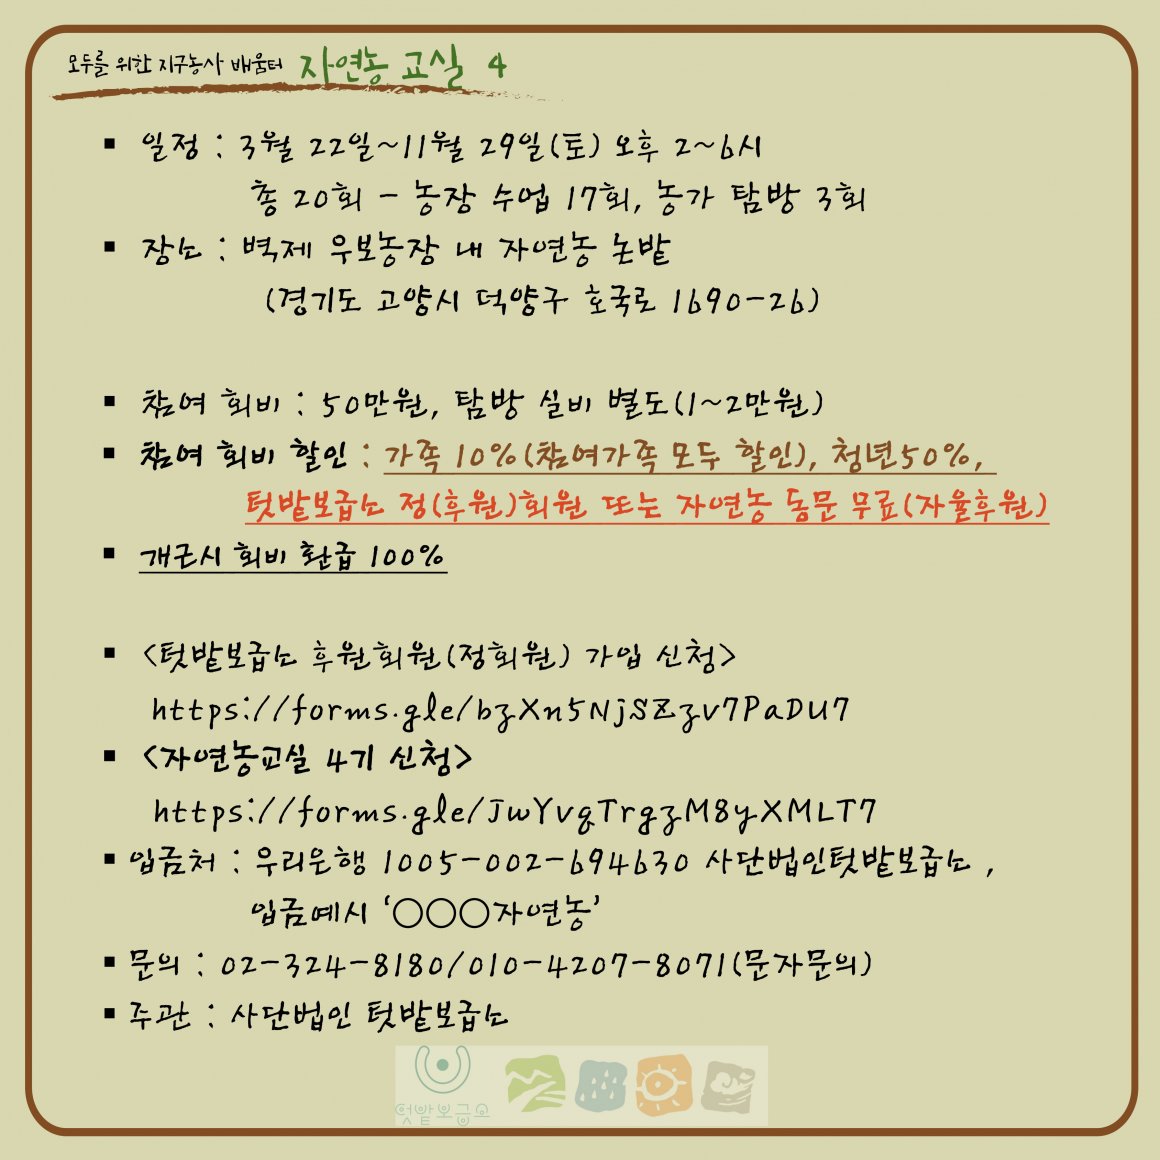 모두를 위한 지구농사 배움터 자연농 교실 4
▪ 일정 : 3월 22일~11월 29일(토) 오후 2~6시
총 20회 - 농장 수업 17회, 농가 탐방 3회
▪ 장소 : 벽제 우보농장 내 자연농 논밭
(경기도 고양시 덕양구 호국로 1690-26)
▪ 참여 회비 : 50만원, 탐방 실비 별도(1~2만원)
▪ 참여 회비 할인 : 가족 10%(참여가족 모두 할인), 청년50%,
텃밭보급소 정(후원)회원 또는 자연농 동문 무료(자율후원)
▪ 개근시 회비 환급 100%
▪ <텃밭보급소 후원회원(정회원) 가입 신청>
https://forms.gle/bzXn5NjSZzv7PaDU7
▪ <자연농교실 4기 신청>
https://forms.gle/JwYvqTrgzM8yXMLT7
▪ 입금처 : 우리은행 1005-002-694630 사단법인텃밭보급소 ,
입금예시 ‘○○○자연농’
▪ 문의 : 02-324-8180/010-4207-8071(문자문의)
▪ 주관 : 사단법인 텃밭보급소
텃밭보급소